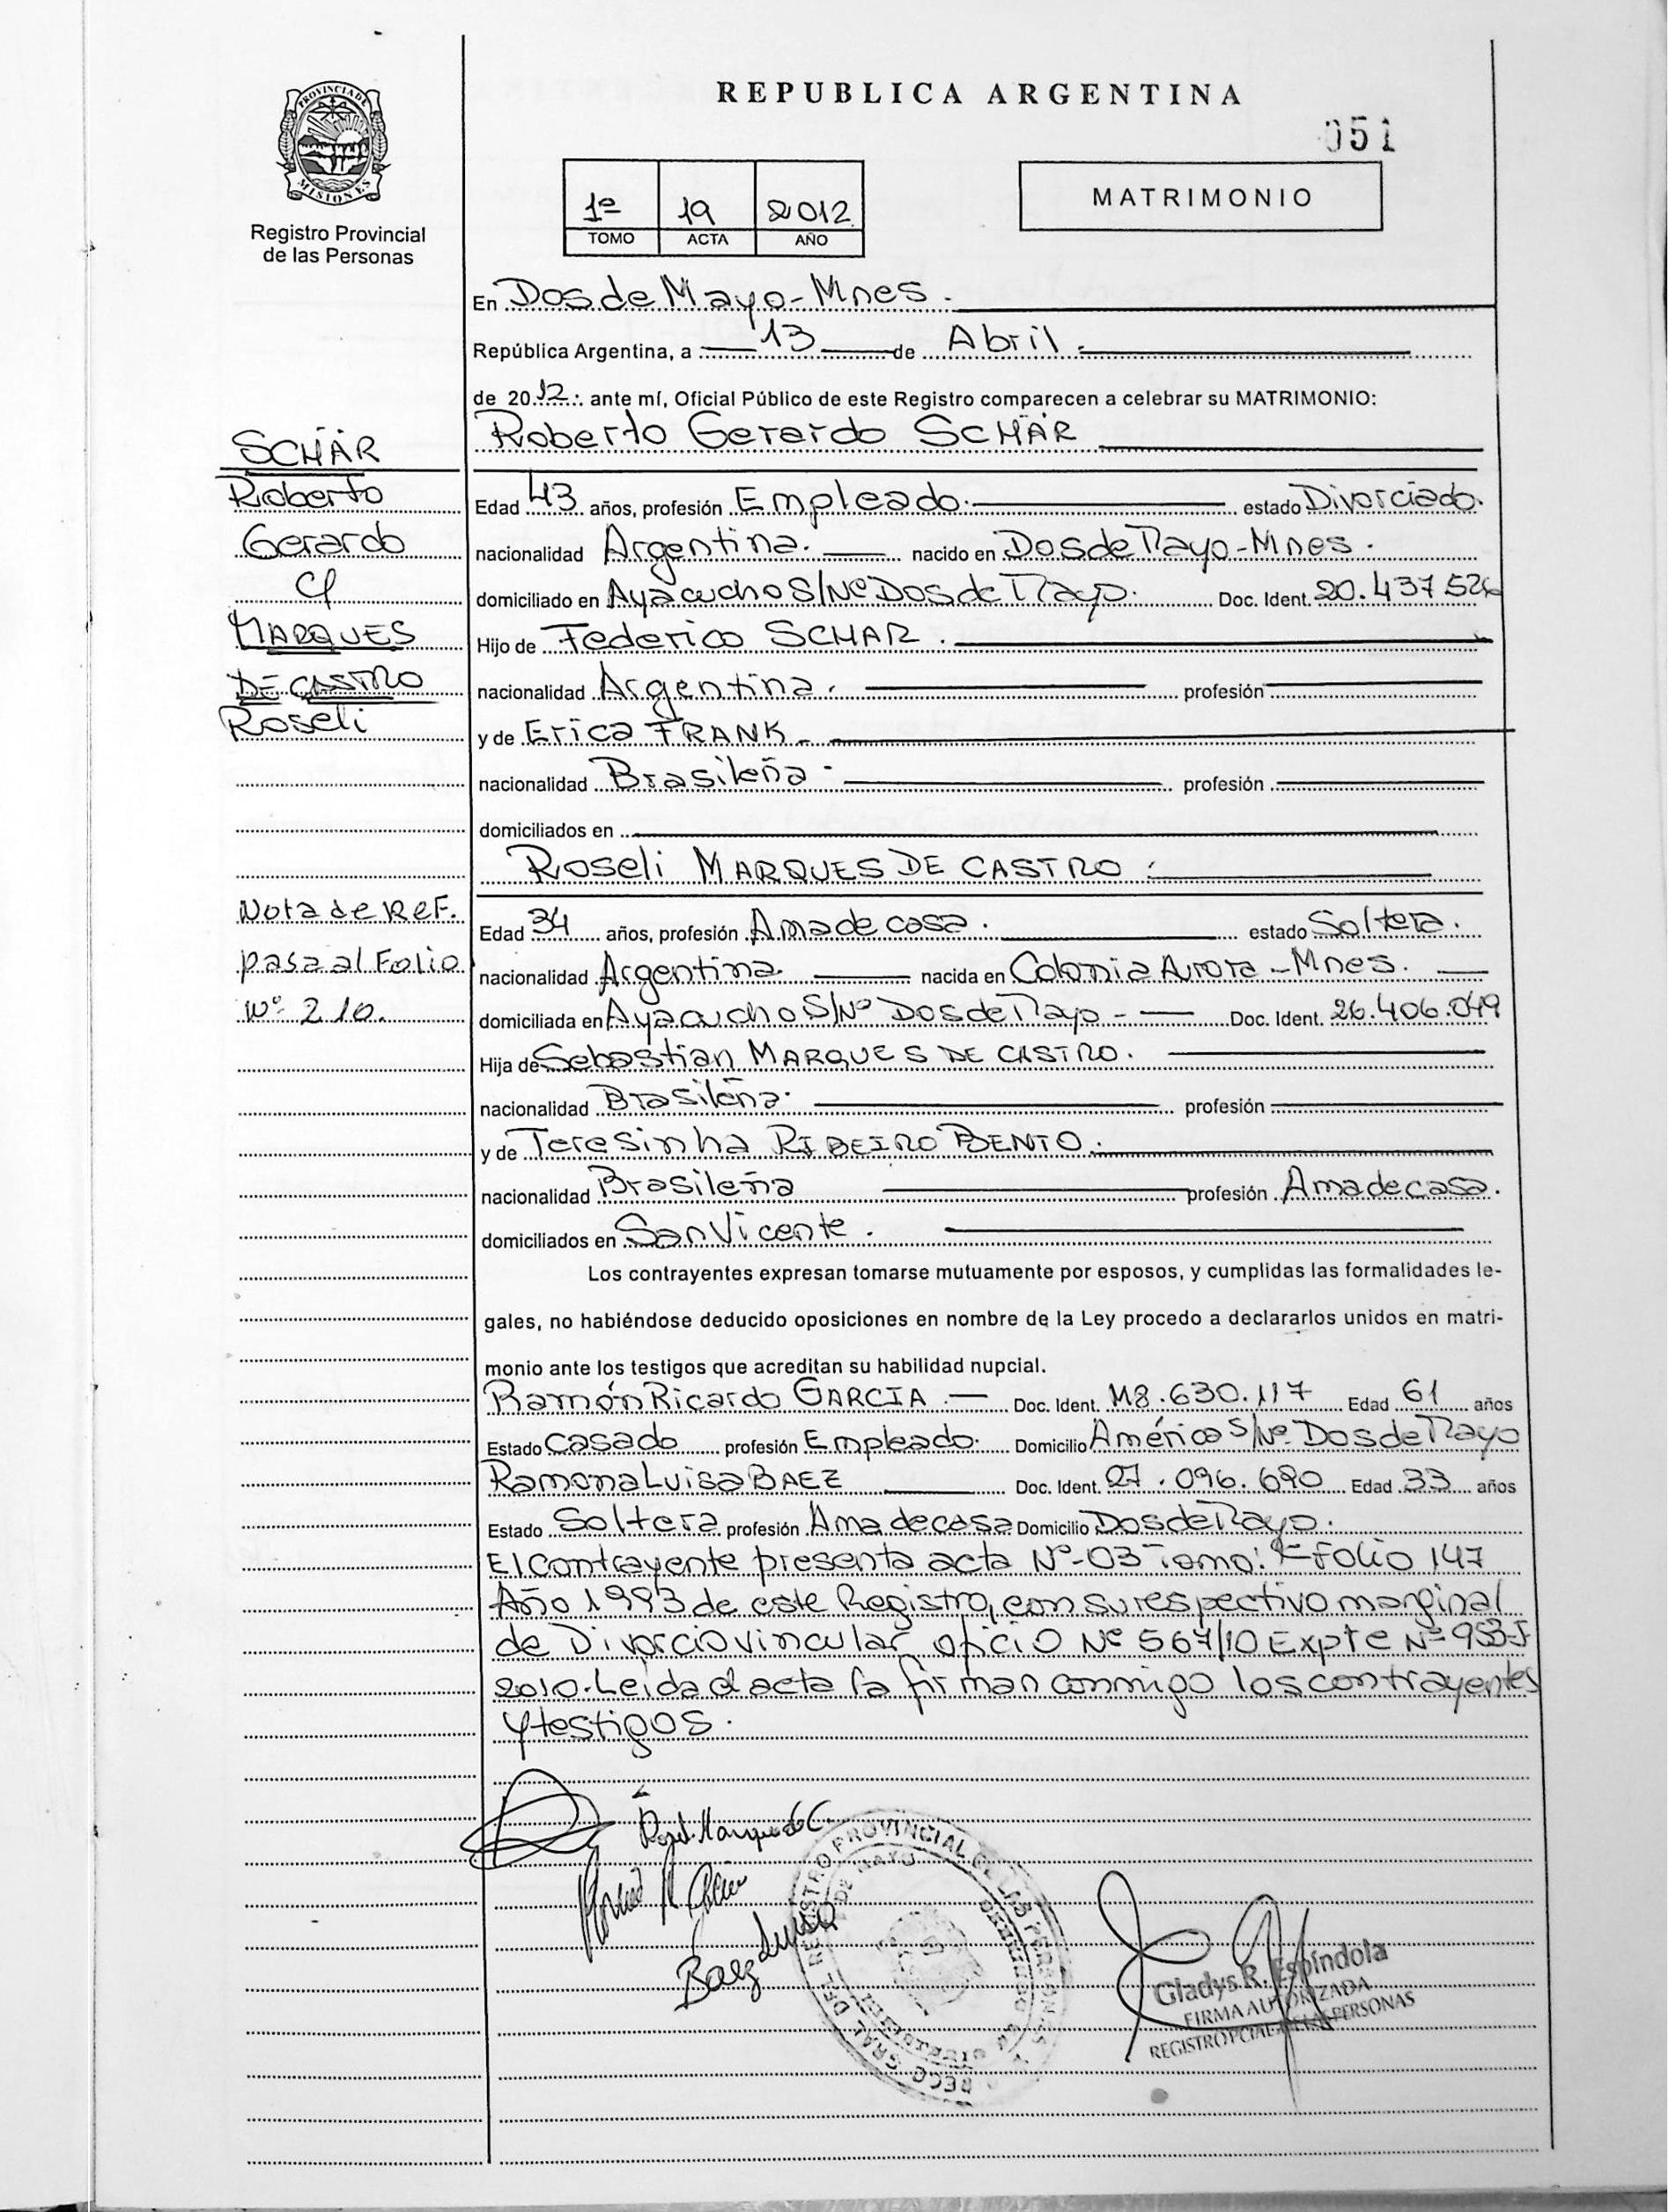 REPUBLICA ARGENTINA
051
PROVINCIA DE MISIONES
Registro Provincial
de las Personas
1º 19 2012
TOMO ACTA AÑO
MATRIMONIO
En Dos de Mayo - Mnes.
República Argentina, a 13 de Abril.
de 2012. ante mí, Oficial Público de este Registro comparecen a celebrar su MATRIMONIO:
Roberto Gerardo SCHÄR
Edad 43 años, profesión Empleado. estado Divorciado.
nacionalidad Argentina. nacido en Dos de Mayo - Mnes.
domiciliado en Ayacucho S/Nº Dos de Mayo. Doc. Ident. 20.437.526
Hijo de Federico SCHAR.
nacionalidad Argentina. profesión
y de Erica FRANK
nacionalidad Brasileña profesión
domiciliados en
Roseli MARQUES DE CASTRO
Edad 34 años, profesión Ama de casa. estado Soltera.
nacionalidad Argentina nacida en Colonia Aurora - Mnes.
domiciliada en Ayacucho S/Nº Dos de Mayo - Doc. Ident. 26.406.049
Hija de Sebastian MARQUES DE CASTRO.
nacionalidad Brasileña. profesión
y de Teresinha RIBEIRO BENTO.
nacionalidad Brasileña profesión Ama de casa.
domiciliados en San Vicente.
Los contrayentes expresan tomarse mutuamente por esposos, y cumplidas las formalidades le-
gales, no habiéndose deducido oposiciones en nombre de la Ley procedo a declararlos unidos en matri-
monio ante los testigos que acreditan su habilidad nupcial.
Ramón Ricardo GARCIA. Doc. Ident. M8.630.117 Edad 61 años
Estado Casado profesión Empleado. Domicilio América S/Nº Dos de Mayo
Ramona Luisa BAEZ Doc. Ident. 27.096.690 Edad 33 años
Estado Soltera profesión Ama de casa Domicilio Dos de Mayo.
El Contrayente presenta acta Nº-03 Tomo: 1º Folio 147
Año 1993 de este Registro, con su respectivo marginal
de Divorcio vincular oficio Nº 567/10 Expte Nº 953-J
2010. Leida el acta la firman conmigo los contrayentes
y testigos.
SCHÄR
Roberto
Gerardo
c/
MARQUES
DE CASTRO
Roseli
Nota de Ref.
pasa al Folio
Nº 210.
Baez Luisa
Gladys R. Espíndola
FIRMA AUTORIZADA
REGISTRO PCIAL. DE LAS PERSONAS